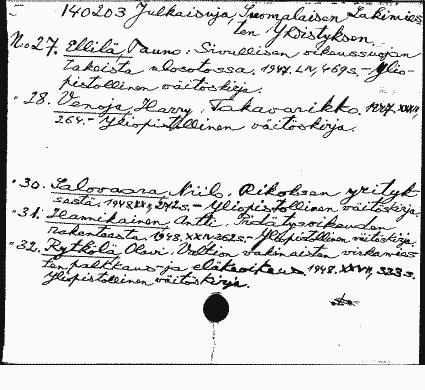 140203 Julkaisuja, Suomalaisen Lakimies
ten Yhdistyksen
No 27. Ellilä, Tauno: Sivullisen oikeussuojan
takeista ulosotossa. 1947. LIV, 469 s. - Ylio-
pistollinen väitöskirja.
" 28. Venoja, Harry. Takavarikko. 1947. XXVII,
264. - Yliopistollinen väitöskirja.
" 30. Salovaara, Niilo. Rikoksen yrityk
sestä. 1948. XX, 272 s. - Yliopistollinen väitöskirja.
" 31. Hannikainen, Antti. Pidätysoikeuden
rakenteesta. 1948. XXIV, 262 s. - Yliopistollinen väitöskirja.
" 32. Rytkölä, Olavi. Valtion vakinaisten virkamies
ten palkkaus- ja eläkeoikeus. 1948. XXVII, 333 s.
Yliopistollinen väitöskirja.